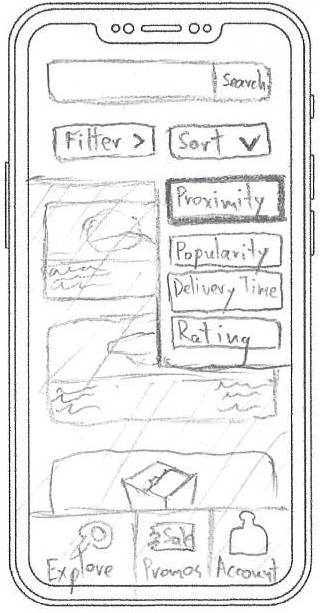 Search
Filter >
Sort
Proximity
Popularity
Delivery Time
Rating
Sale
Explore
Promos
Account